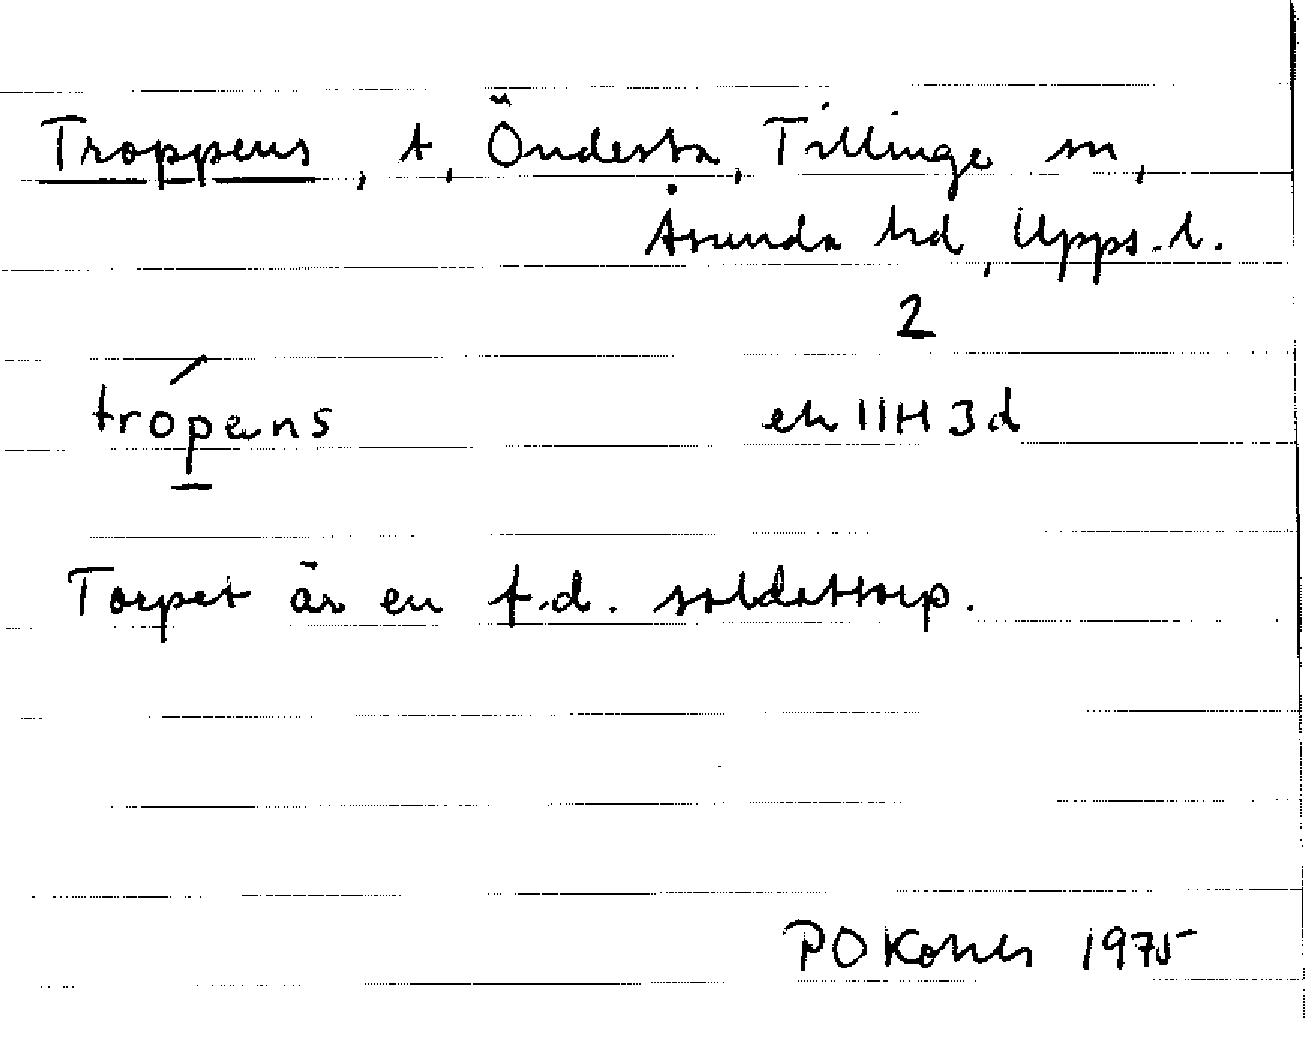 Troppens, t, Öndesta, Tillinge sn,
Åsunda hd, Upps. l.
2
trópens
ek 11H 3d
Torpet är en f.d. soldattorp.
1975